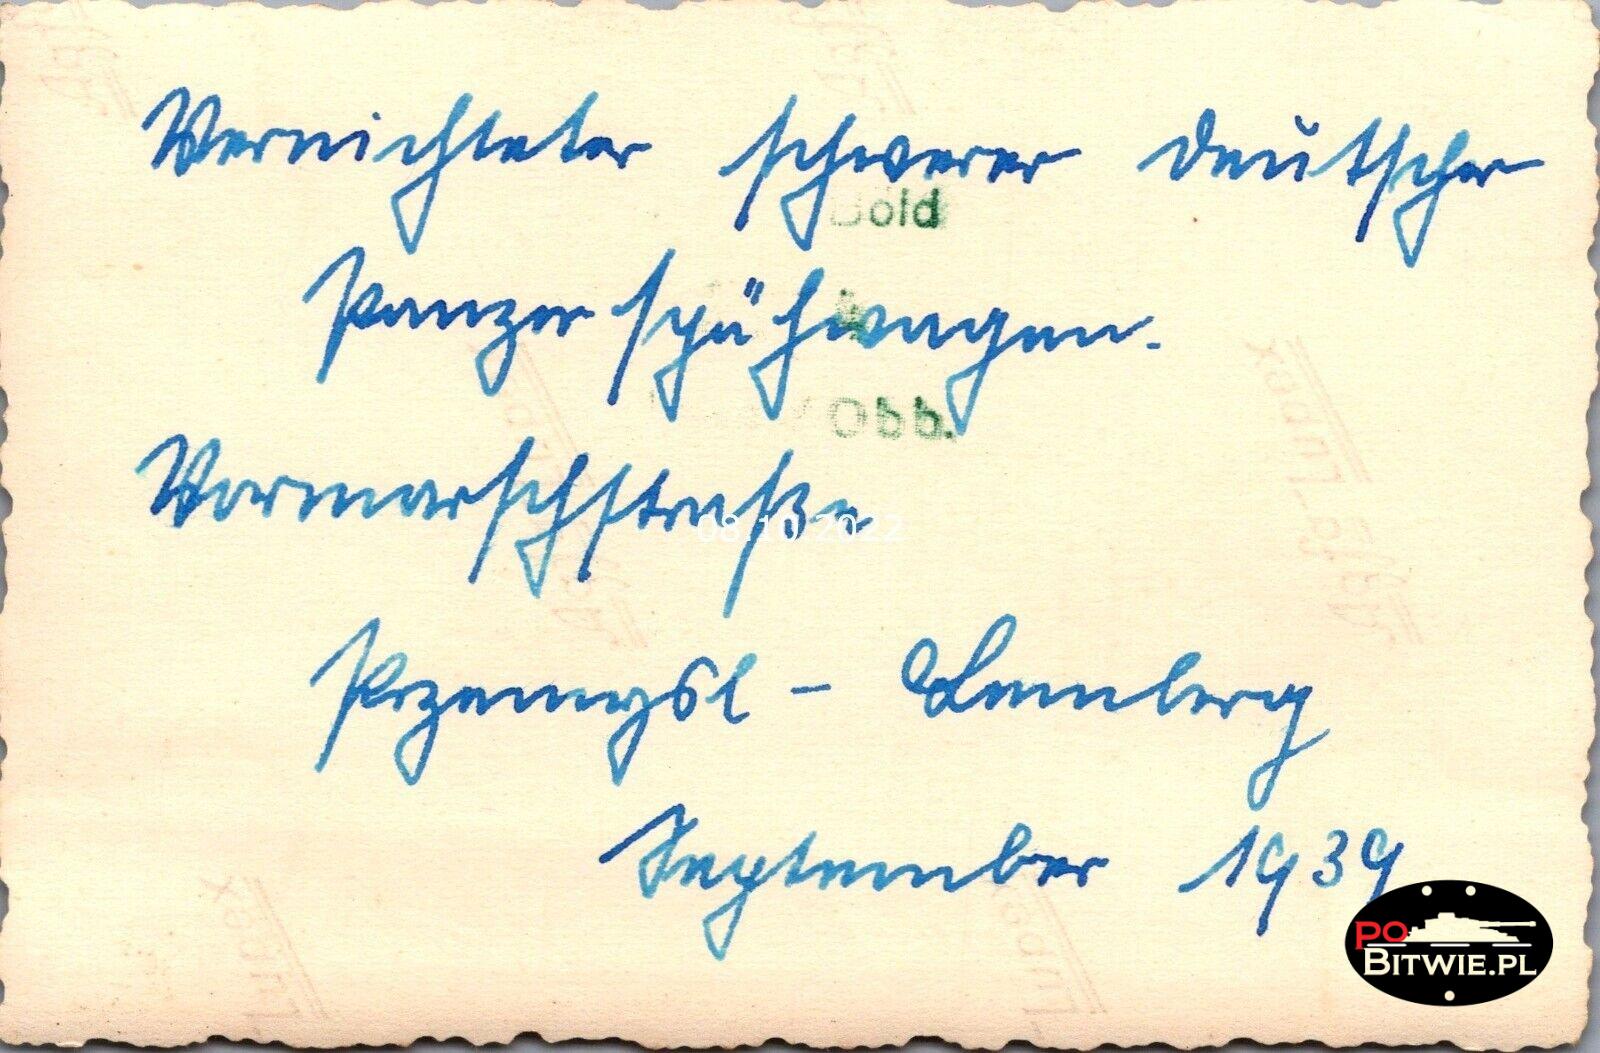 Vernichteter schwerer deutscher
old
Panzerspähwagen.
Obb.
Vormarschstraße
08.10.2022
Przemysl – Lemberg
September 1939
PO
BITWIE.PL